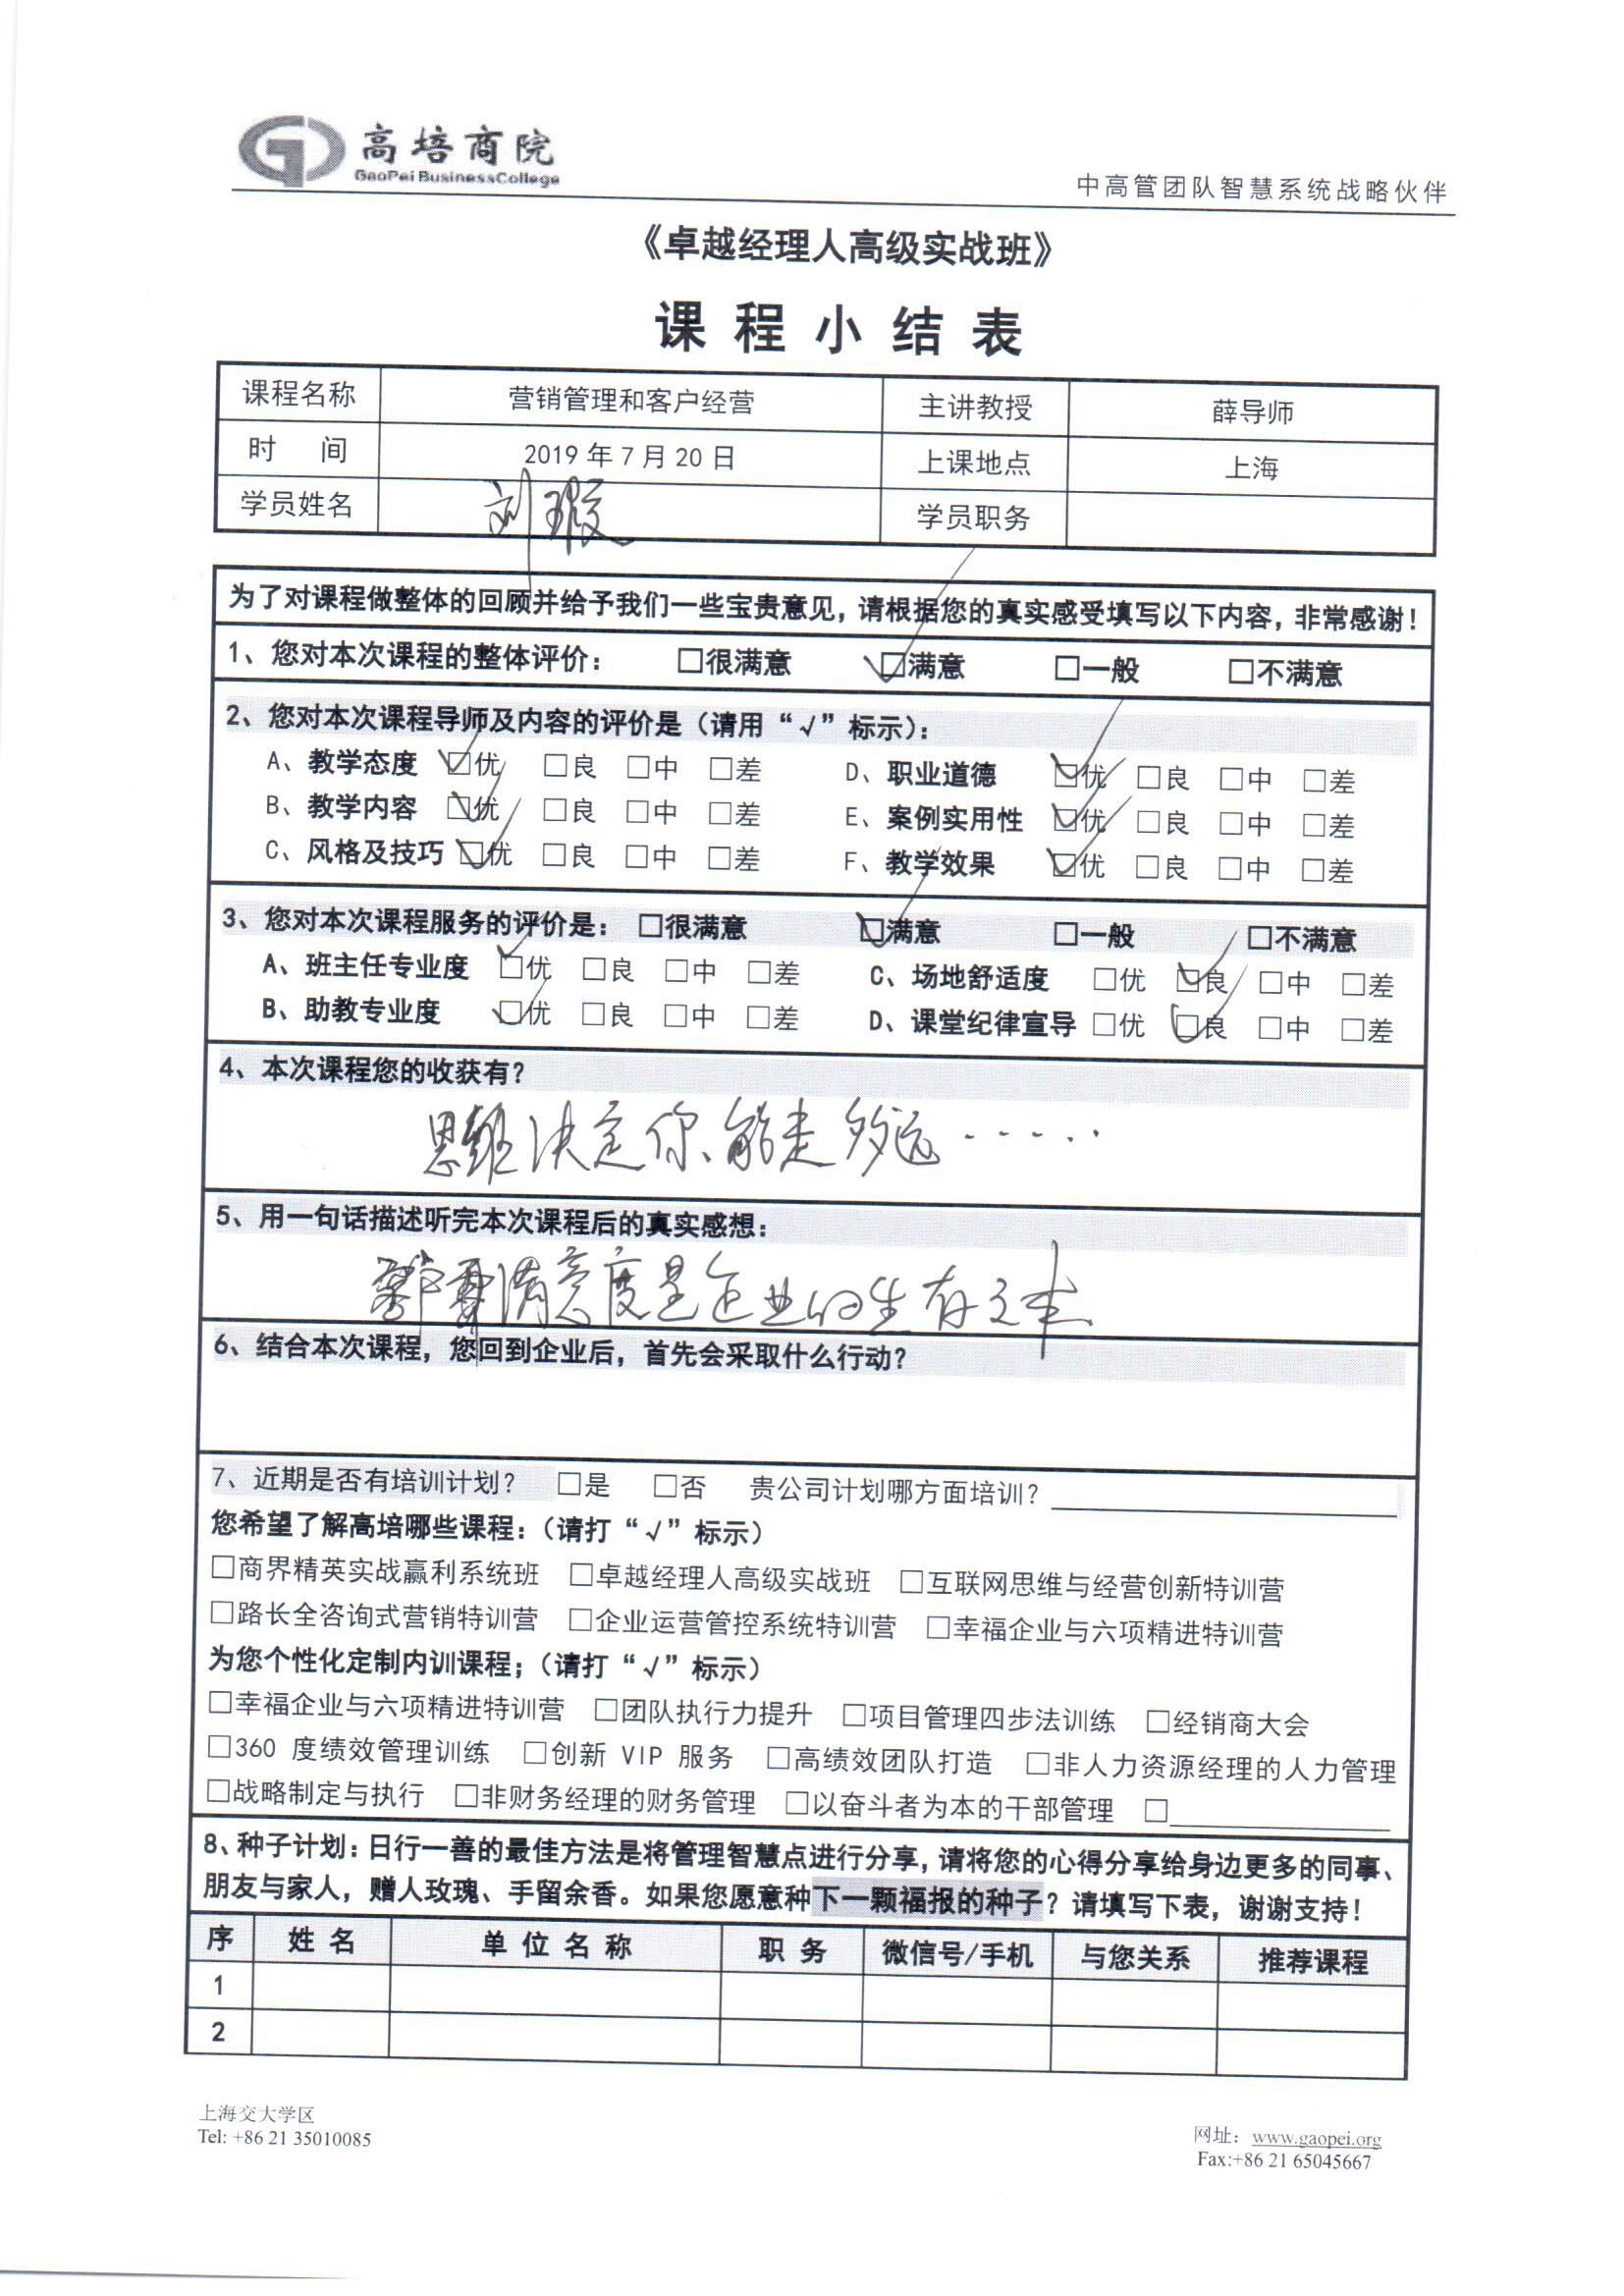 高培商院
GaoPei BusinessCollege
中高管团队智慧系统战略伙伴
《卓越经理人高级实战班》
课程小结表
课程名称 营销管理和客户经营 主讲教授 薛导师
时 间 2019 年 7 月 20 日 上课地点 上海
学员姓名 刘瑕 学员职务
为了对课程做整体的回顾并给予我们一些宝贵意见，请根据您的真实感受填写以下内容，非常感谢！
1、您对本次课程的整体评价： □很满意 ☑满意 □一般 □不满意
2、您对本次课程导师及内容的评价是（请用“√”标示）：
A、教学态度 ☑优 □良 □中 □差 D、职业道德 ☑优 □良 □中 □差
B、教学内容 ☑优 □良 □中 □差 E、案例实用性 ☑优 □良 □中 □差
C、风格及技巧 ☑优 □良 □中 □差 F、教学效果 ☑优 □良 □中 □差
3、您对本次课程服务的评价是： □很满意 ☑满意 □一般 □不满意
A、班主任专业度 ☑优 □良 □中 □差 C、场地舒适度 □优 ☑良 □中 □差
B、助教专业度 ☑优 □良 □中 □差 D、课堂纪律宣导 □优 ☑良 □中 □差
4、本次课程您的收获有？
思维决定你能走多远······
5、用一句话描述听完本次课程后的真实感想：
满意度是企业的生存之本
6、结合本次课程，您回到企业后，首先会采取什么行动？
7、近期是否有培训计划？ □是 □否 贵公司计划哪方面培训？
您希望了解高培哪些课程：（请打“√”标示）
□商界精英实战赢利系统班 □卓越经理人高级实战班 □互联网思维与经营创新特训营
□路长全咨询式营销特训营 □企业运营管控系统特训营 □幸福企业与六项精进特训营
为您个性化定制内训课程；（请打“√”标示）
□幸福企业与六项精进特训营 □团队执行力提升 □项目管理四步法训练 □经销商大会
□360 度绩效管理训练 □创新 VIP 服务 □高绩效团队打造 □非人力资源经理的人力管理
□战略制定与执行 □非财务经理的财务管理 □以奋斗者为本的干部管理 □
8、种子计划：日行一善的最佳方法是将管理智慧点进行分享，请将您的心得分享给身边更多的同事、
朋友与家人，赠人玫瑰、手留余香。如果您愿意种下一颗福报的种子？请填写下表，谢谢支持！
序 姓 名 单 位 名 称 职 务 微信号/手机 与您关系 推荐课程
1
2
上海交大学区
Tel: +86 21 35010085
网址：www.gaopei.org
Fax:+86 21 65045667